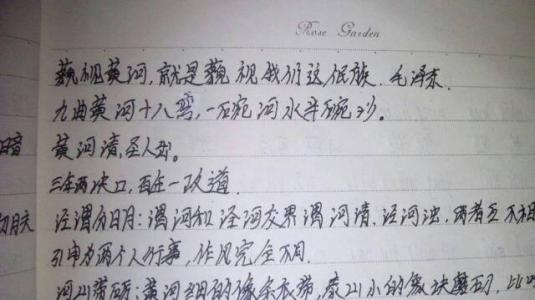 Rose Garden
藐视黄河,就是藐视我们这个民族. 毛泽东.
九曲黄河十八弯,一碗河水半碗沙。
黄河清,圣人出。
三年两决口,百年一改道.
泾渭分明:渭河和泾河交界渭河清,泾河浊,两者互不相
引申为两个人行事,作风完全不同.
河山带砺:黄河细的像条衣带,泰山小的像块磨刀,比